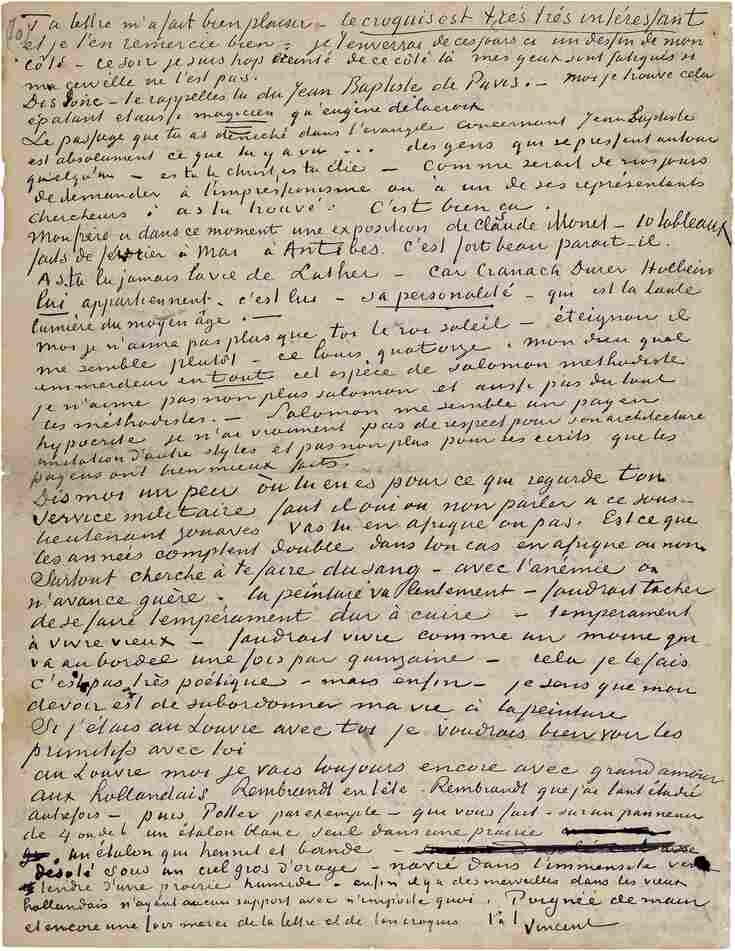 Ta lettre m'a fait bien plaisir – le croquis est très très intéressant
et je t'en remercie bien – je t'enverrai de ces jours ci un dessin de mon
côté – ce soir je suis trop éreinté de ce côté là mes yeux sont fatigués si
ma cervelle ne l'est pas.
Dis donc – te rappelles tu du Jean Baptiste de Puvis. – moi je trouve cela
épatant et aussi magicien qu'Eugène delacroix
Le passage que tu as déniché dans l'evangile concernant Jean Baptiste
est absolument ce que tu y a vu ... des gens qui se pressent autour
quelqu'un – es tu le christ, es tu Elie – Comme serait de nos jours
de demander à l'impressionisme ou à un de ses représentants
chercheurs: as tu trouvé. C'est bien ça.
Mon frère a dans ce moment une exposition de Claude Monet – 10 tableaux
faits de fevrier à Mai à Antibes. C'est fort beau parait-il.
As tu lu jamais la vie de Luther – car Cranach Durer Holbein
lui appartiennent. c'est lui – sa personalité – qui est la haute
lumière du moyen âge. –
Moi je n'aime pas plus que toi le roi soleil – éteignoir il
me semble plutôt – ce Louis quatorze. mon dieu quel
emmerdeur en tout cet espèce de Salomon methodiste
je n'aime pas non plus Salomon et aussi pas du tout
les méthodistes. – Salomon me semble un payen
hypocrite je n'ai vraiment pas de respect pour son architecture
imitation d'autre styles et pas non plus pour ses ecrits que les
payens ont bien mieux faits.
Dis moi un peu où tu en es pour ce que regarde ton
service militaire faut il oui ou non parler a ce sous-
lieutenant zouaves vas tu en afrique ou pas. Est ce que
les années comptent double dans ton cas en afrique ou non.
Surtout cherche à te faire du sang – avec l'anémie on
n'avance guère – la peinture va lentement – faudrait tacher
de se faire tempérament dur à cuire – temperament
à vivre vieux – faudrait vivre comme un moine qui
va au bordel une fois par quinzaine – cela je le fais
c'est pas très poétique – mais enfin – je sens que mon
devoir est de subordonner ma vie à la peinture
Si j'étais au Louvre avec toi je voudrais bien voir les
primitifs avec toi
au Louvre moi je vais toujours encore avec grand amour
aux hollandais Rembrandt en tête – Rembrandt que j'ai tant étudié
autrefois – puis Potter par exemple – qui vous fait – sur un panneau
de 4 ou de 6 un étalon blanc seul dans une prairie
un étalon qui hennit et bande –
désolé sous un ciel gros d'orage – navré dans l'immensité vert
tendre d'une prairie humide. enfin il y a des merveilles dans les vieux
hollandais n'ayant aucun rapport avec n'importe quoi. Poignée de main
et encore une fois merci de ta lettre et de ton croquis t. à t.
Vincent